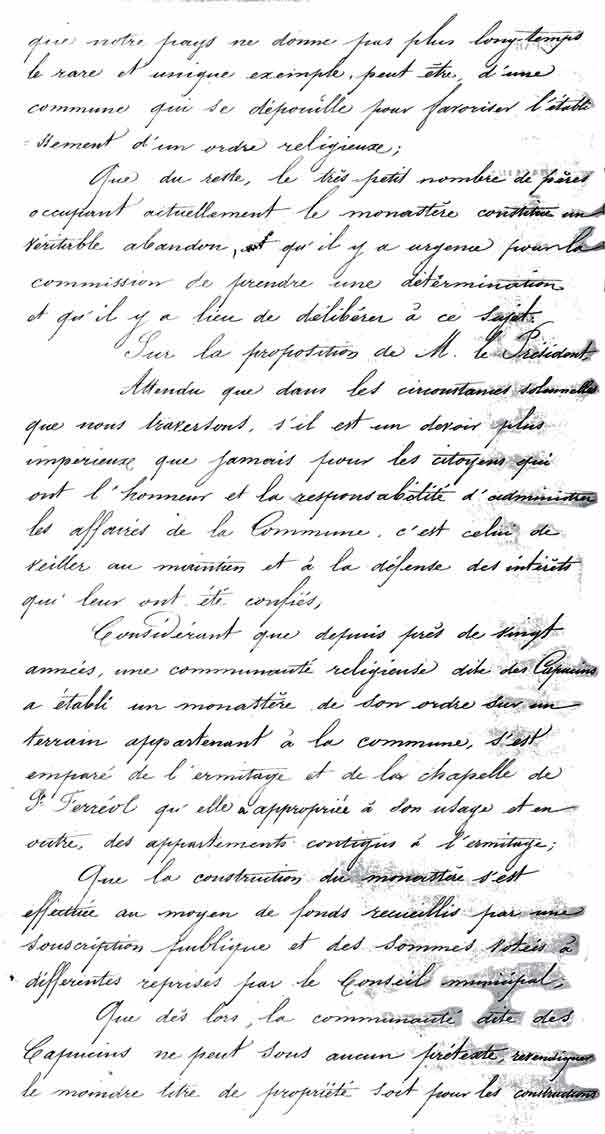 que notre pays ne donne pas plus long-temps
le rare et unique exemple, peut être, d'une
commune qui se dépouille pour favoriser l'établi
-ssement d'un ordre religieux;
Que du reste, le très petit nombre de pères
occupant actuellement le monastère constitue un
véritable abandon, et qu'il y a urgence pour la
commission de prendre une détermination
et qu'il y a lieu de délibérer à ce sujet.
Sur la proposition de M. le Président,
Attendu que dans les circonstances solennelles
que nous traversons, s'il est un devoir plus
impérieux que jamais pour les citoyens qui
ont l'honneur et la responsabilité d'administrer
les affaires de la Commune, c'est celui de
veiller au maintien et à la défense des intérêts
qui leur ont été confiés,
Considérant que depuis près de vingt
années, une communauté religieuse dite des Capucins
a établi un monastère de son ordre sur un
terrain appartenant à la commune, s'est
emparé de l'ermitage et de la chapelle de
St Ferréol qu'elle a appropriée à son usage et en
outre, des appartements contigus à l'ermitage;
Que la construction du monastère s'est
effectuée au moyen de fonds recueillis par une
souscription publique et des sommes votées à
différentes reprises par le Conseil municipal;
Que dès lors, la communauté dite des
Capucins ne peut sous aucun prétexte, revendiquer
le moindre titre de propriété soit pour les constructions